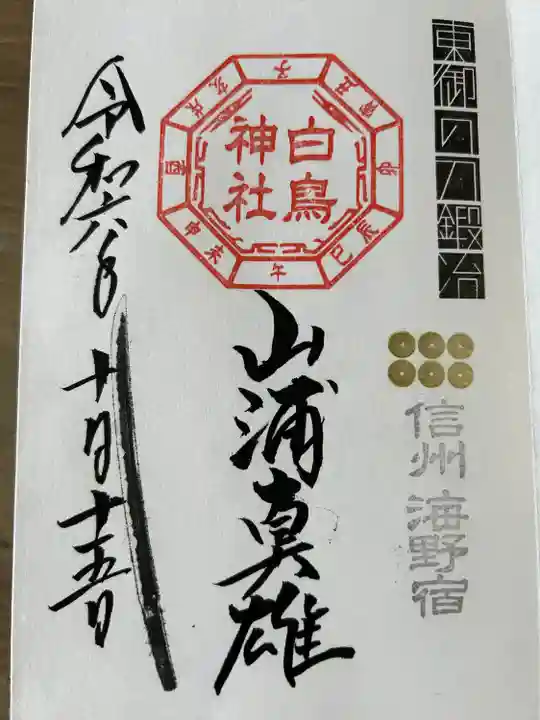 東御の刀鍛冶
信州 海野宿
白鳥
神社
子
丑
寅
卯
辰
巳
午
未
申
酉
戌
亥
山浦真雄
令和六年十月十五日